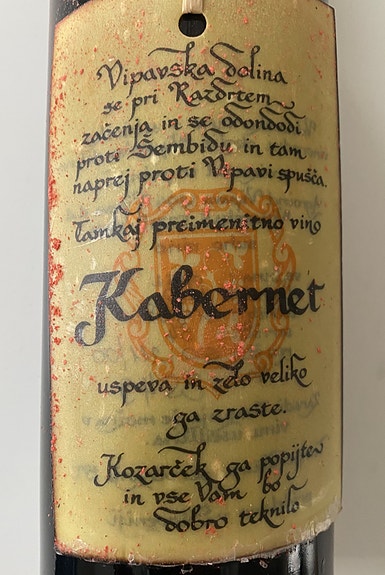 Vipavska dolina
se pri Razdrtem
začenja in se odondodi
proti Šembidu in tam
naprej proti Vipavi spušča.
Tamkaj preimenitno vino
Kabernet
uspeva in zelo veliko
ga zraste.
Kozarček ga popijte
in vse Vam bo
dobro teknilo